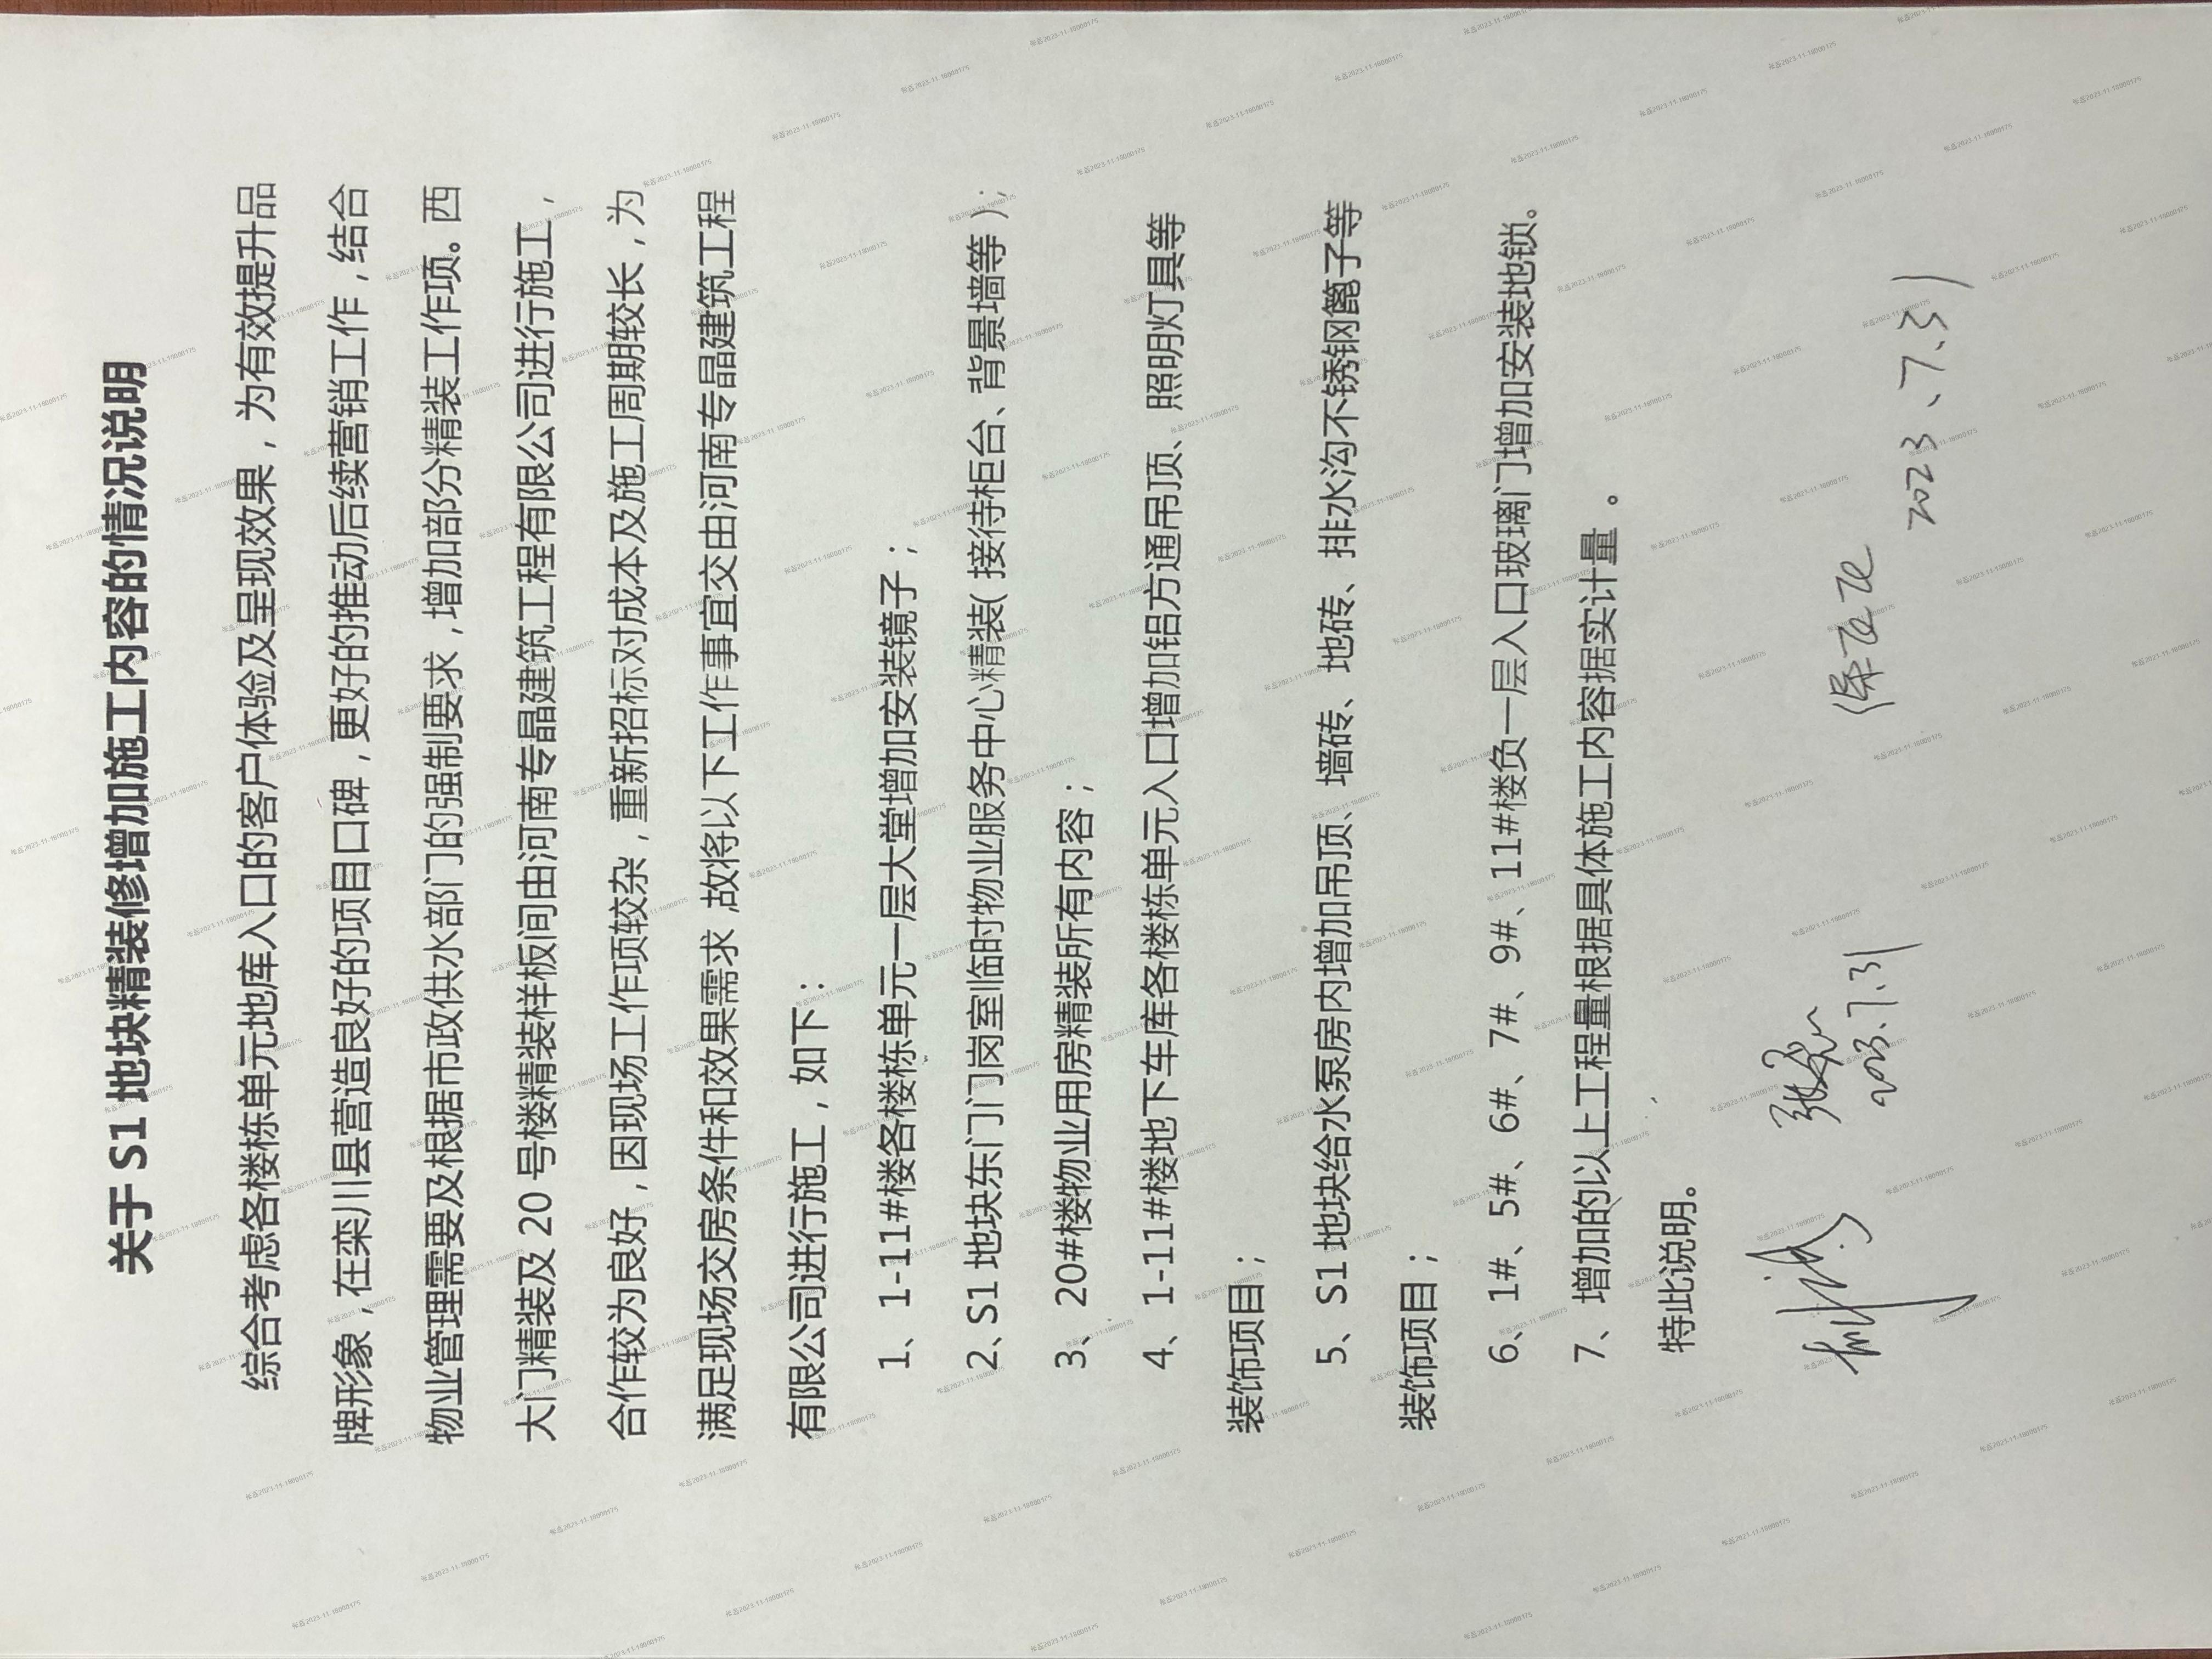 关于 S1 地块精装修增加施工内容的情况说明
综合考虑各楼栋单元地库入口的客户体验及呈现效果，为有效提升品
牌形象，在栾川县营造良好的项目口碑，更好的推动后续营销工作，结合
物业管理需要及根据市政供水部门的强制要求，增加部分精装工作项。西
大门精装及 20 号楼精装样板间由河南专晶建筑工程有限公司进行施工，
合作较为良好，因现场工作项较杂，重新招标对成本及施工周期较长，为
满足现场交房条件和效果需求，故将以下工作事宜交由河南专晶建筑工程
有限公司进行施工，如下：
1、1-11#楼各楼栋单元一层大堂增加安装镜子；
2、S1 地块东门门岗室临时物业服务中心精装（接待柜台、背景墙等）；
3、20#楼物业用房精装所有内容；
4、1-11#楼地下车库各楼栋单元入口增加铝方通吊顶、照明灯具等
装饰项目；
5、S1 地块给水泵房内增加吊顶、墙砖、地砖、排水沟不锈钢篦子等
装饰项目；
6、1#、5#、6#、7#、9#、11#楼负一层入口玻璃门增加安装地锁。
7、增加的以上工程量根据具体施工内容据实计量 。
特此说明。
2023.7.31
2023、7、31